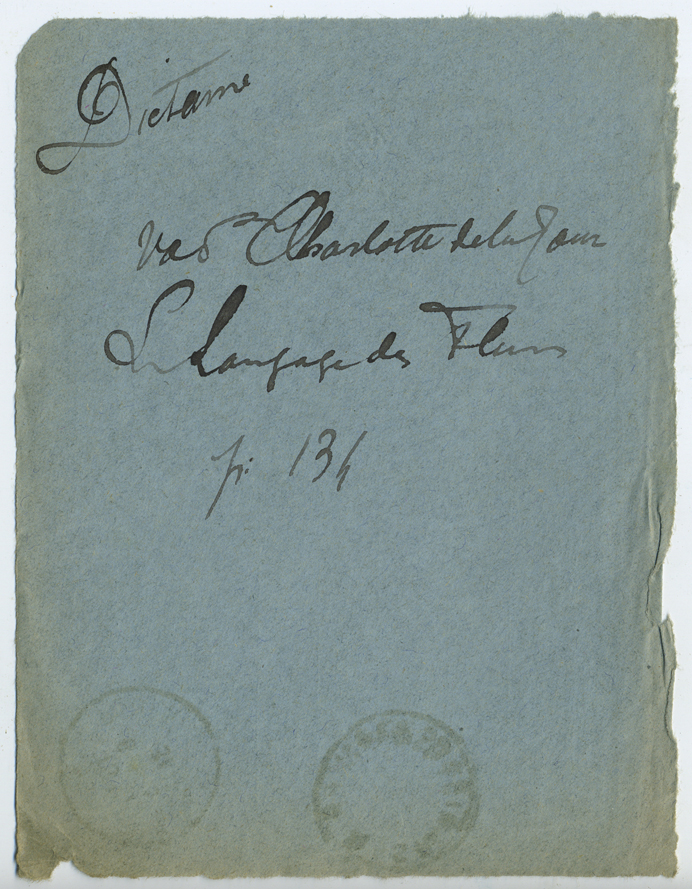 Dictame
vad Charlotte de la Tour
Le Langage des Fleurs
p. 134